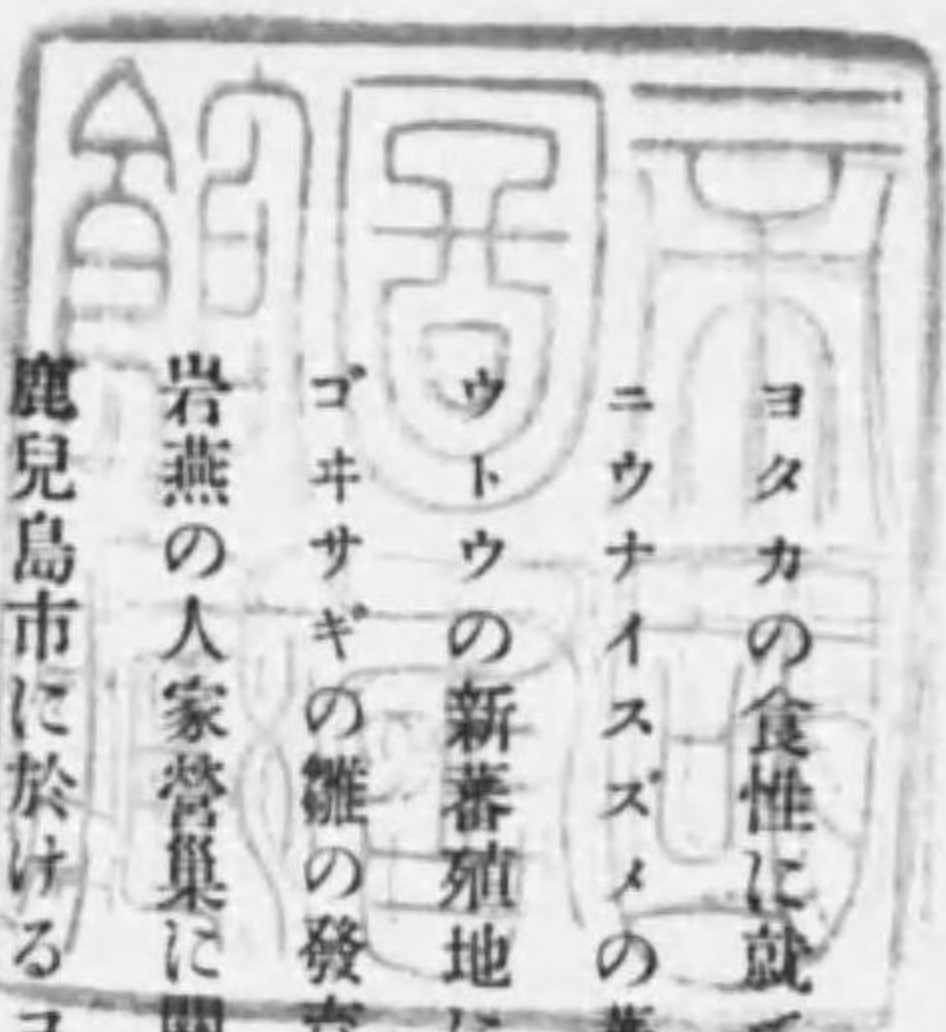 ヨタカの食性に就て
ニウナイスズメの蕃
ウトウの新蕃殖地に
ゴヰサギの雛の發育
岩燕の人家營巢に關
鹿兒島市に於ける